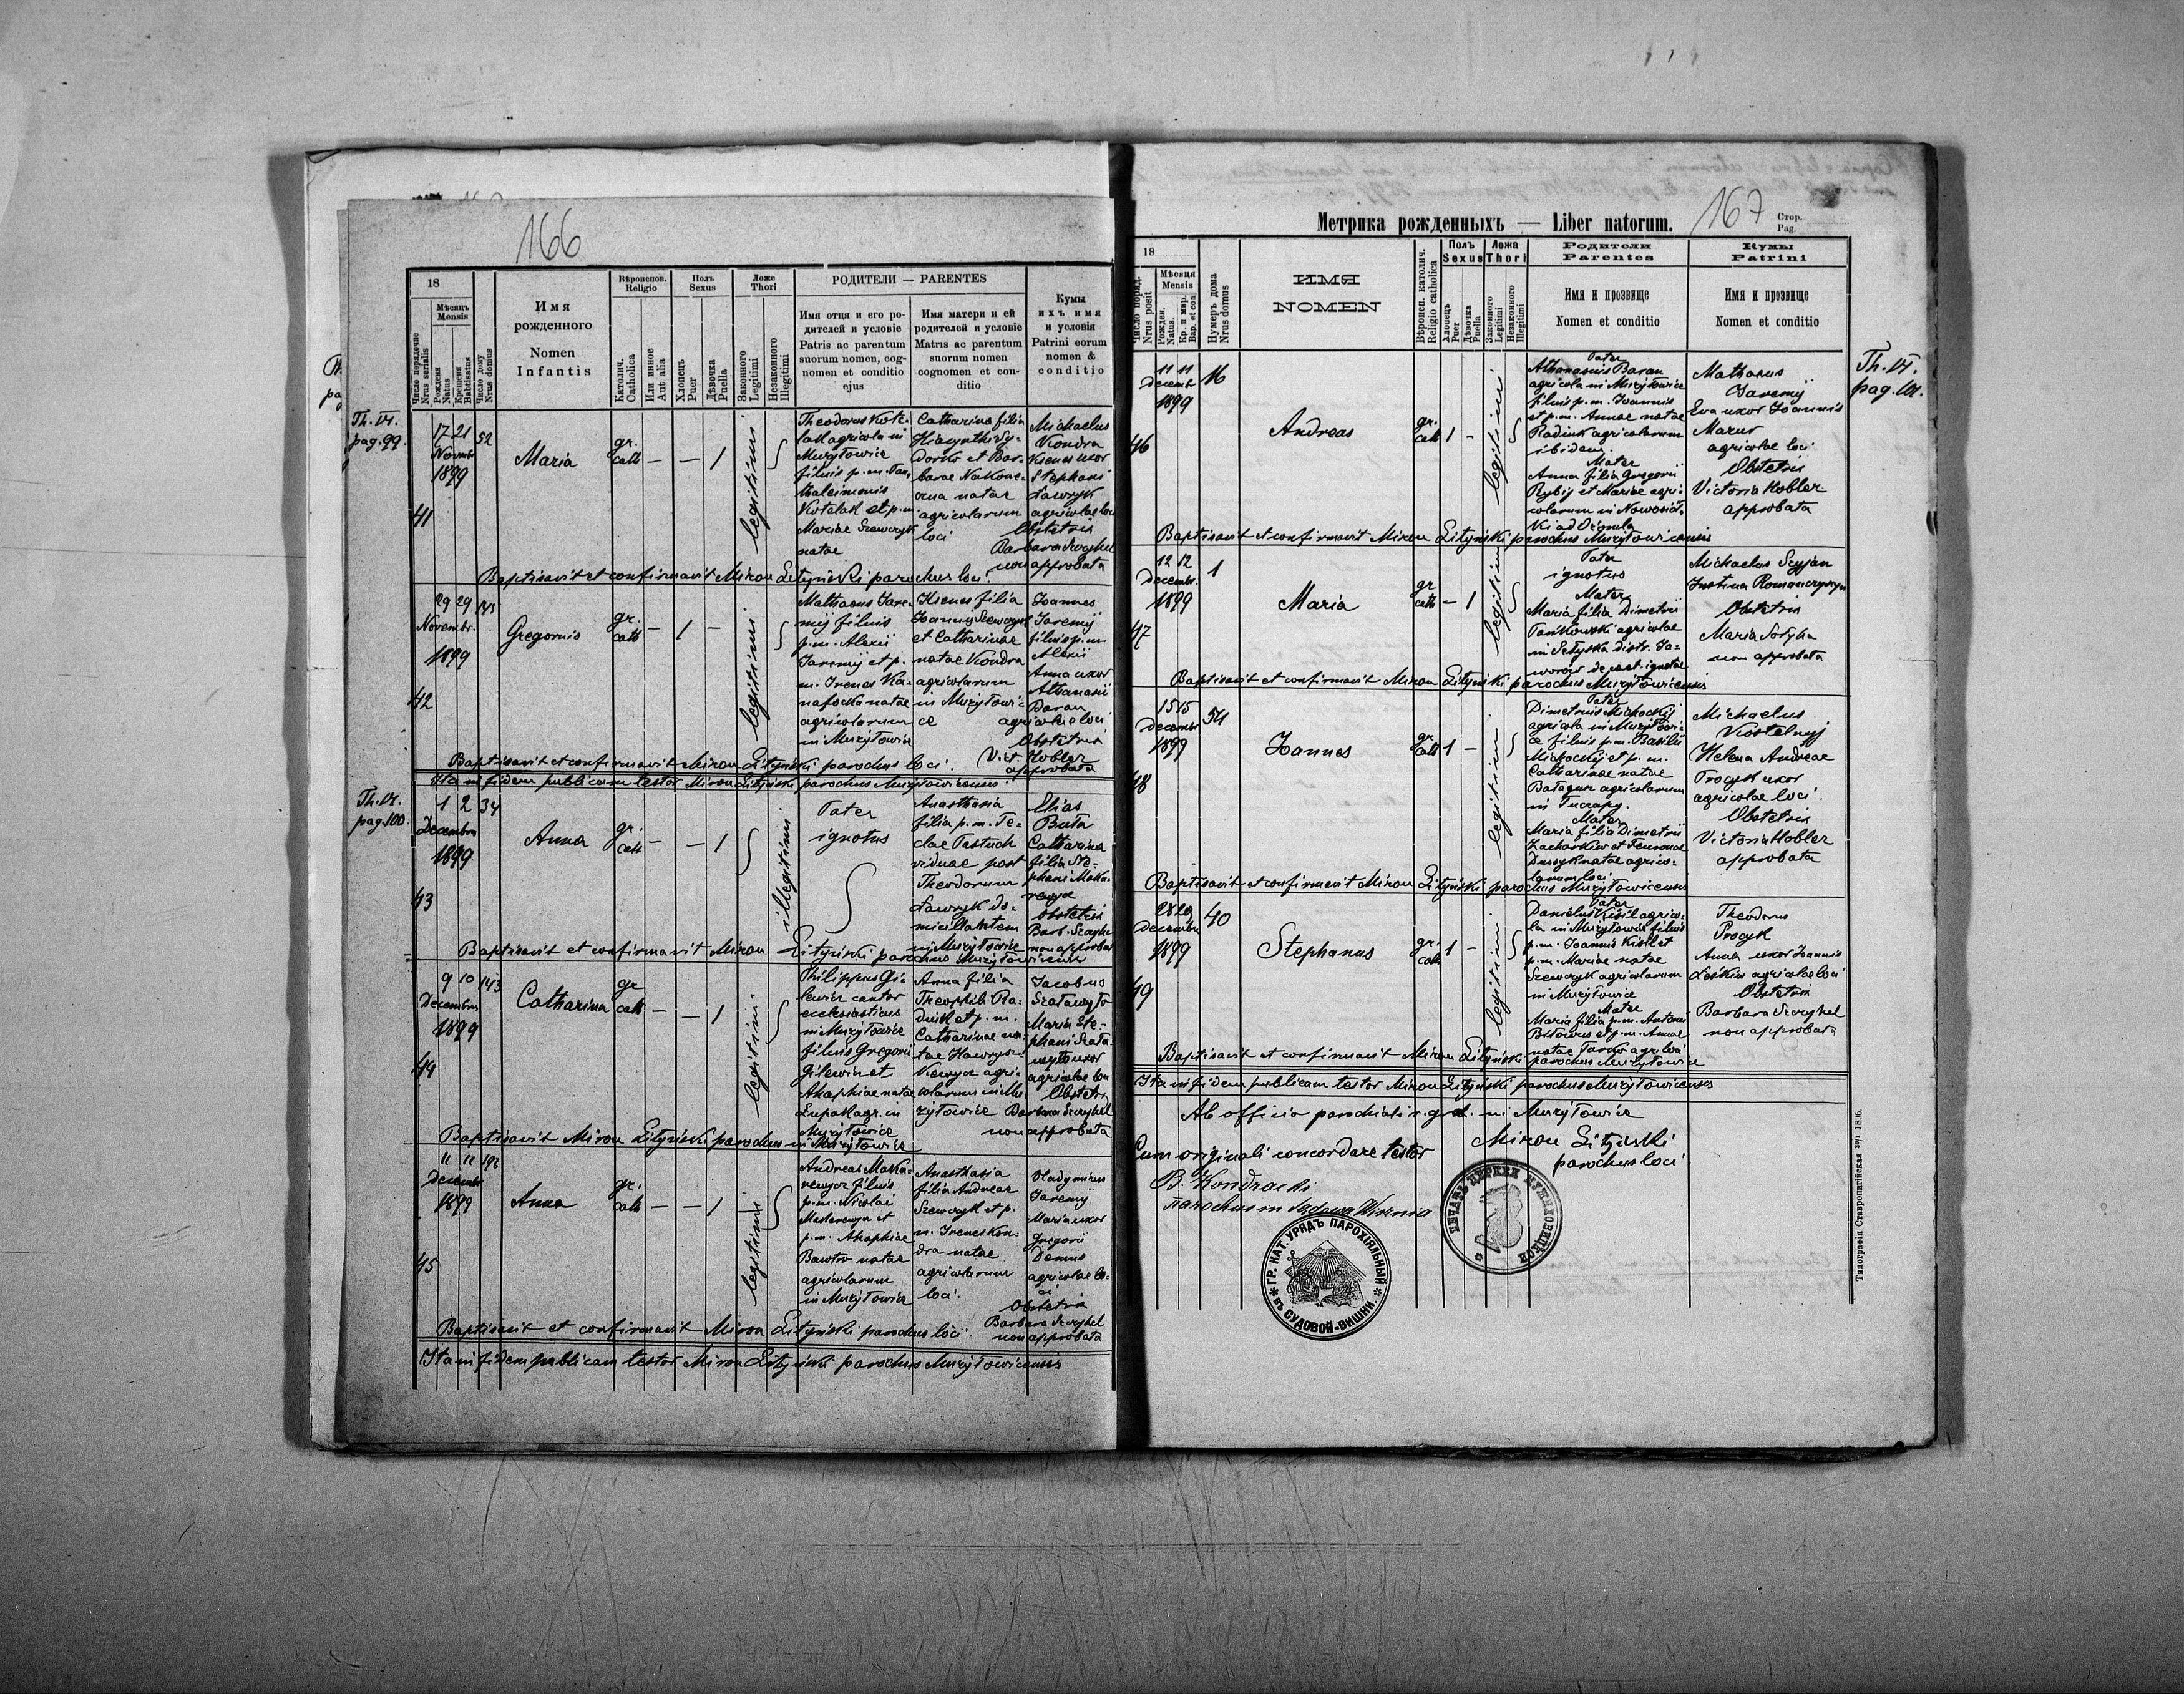 166
18
Мѣсяць
Mensis
Число порядочне
Nrus serialis
Рожденя
Natus
Крещеня
Babtisatus
Число дому
Nrus domus
Имя
рожденного
Nomen
Infantis
Вѣроиспов.
Religio
Католич.
Catholica
Или инное
Aut alia
Полъ
Sexus
Хлопець
Puer
Дѣвочка
Puella
Ложе
Thori
Законного
Legitimi
Незаконного
Illegitimi
РОДИТЕЛИ — PARENTES
Имя отця и его ро-
дителей и условіе
Patris ac parentum
suorum nomen, cog-
nomen et conditio
ejus
Имя матери и ей
родителей и условіе
Matris ac parentum
suorum nomen
cognomen et con-
ditio
Кумы
ихъ имя
и условія
Patrini eorum
nomen &
conditio
Th. VI.
pag. 99.
41
17 21
Novembr
1899
52
Maria
gr.
cath
— — 1
legitimi
Theodorus Kote-
lak agricola in
Mużyłowice
filius p.m. Pan-
taleimonis
Kotelak et p.m.
Mariae Szewczyk
natae
Catharina filia
Hiacynthi Sy-
dorko et Bar-
barae Nakone-
czna natae
agricolarum
loci
Michaelus
Kondra
Ksenes uxor
Stephani
Ławryk
agricolae loci
Obstetrix
Barbara Szczyhel
non approbata
Baptisavit et confirmavit Miron Lityński parochus loci.
42
29 29
Novembr.
1899
143
Gregorius
gr.
cath
— 1 —
legitimi
Mathaeus Jare-
mij filius
p.m. Alexii
Jaremij et p.
m. Irenes Ka-
nafocka natae
agricolarum
in Mużyłowice
Ksenes filia
Joannis Szewczyk
et Catharinae
natae Kondra
agricolarum
in Mużyłowi-
ce
Joannes
Jaremij
filius p.m.
Alexii
Anna uxor
Athanasii
Baran
agricolae loci
Obstetrix
Vict. Kobler
approbata
Baptisavit et confirmavit Miron Lityński parochus loci.
Ita in fidem publicam testor Miron Lityński parochus Mużyłowicensis
Th. VI.
pag. 100.
43
1 2
Decembris
1899
34
Anna
gr.
cath
— — 1
illegitimi
Pater
ignotus
Anasthasia
filia p.m. Te-
clae Pastuch
viduae post
Theodorum
Ławryk do-
micilantem
in Mużyłowice
Elias
Buta
Catharina
filia Ste-
phani Maka-
rewycz
obstetrix
Barb. Szczyhel
non approbat
Baptisavit et confirmavit Miron Lityński parochus Mużyłowicensis
44
9 10
Decembris
1899
143
Catharina
gr
cath
— — 1
legitimi
Philippus Gi-
lewicz cantor
ecclesiasticus
in Mużyłowice
filius Gregorii
Gilewicz et
Ahaphiae natae
Łupak agr. in
Mużyłowice
Anna filia
Theophili Ra-
duik et p.m.
Catharinae na-
tae
agri-
colarum in Mu-
żyłowice
Jacobus
Szatawyło
Maria Ste-
phani Szata-
wyło uxor
agricolae loci
Obstetrix
Barbara Szczyhel
non approbata
Baptisavit Miron Lityński parochus in Mużyłowice
45
11 11
Decembr
1899
Anna
gr.
cath
— — 1
legitimi
Andreas Maka-
rewycz filius
p.m. Nicolai
Makarewycz et
p.m. Ahaphiae
natae
agricolarum
in Mużyłowice
Anasthasia
filia Andreae
Szewczyk et p.
m. Irenes Kon-
dra natae
agricolarum
loci.
Vladymirus
Jaremij
Maria uxor
Gregorii
Demus
agricolae lo-
ci
Obstetrix
Barbara Szczyhel
non approbata
Baptisavit et confirmavit Miron Lityński parochus loci.
Ita in fidem publicam testor Miron Lityński parochus Mużyłowicensis
Метрика рожденныхъ — Liber natorum.
167
Стор.
Pag.
18
Число поряд.
Nrus posit
Мѣсяця
Mensis
Рожден.
Natus.
Кр. и мvр.
Bap. et con
Нумеръ дома
Nrus domus
ИМЯ
NOMEN
Вѣроисп. католич.
Religio catholica
Полъ
Sexus
Хлопець
Puer
Дѣвочка
Puella
Ложа
Thori
Законного
Legitimi
Незаконного
Illegitimi
Родители
Parentes
Имя и прозвище
Nomen et conditio
Кумы
Patrini
Имя и прозвище
Nomen et conditio
Th. VI.
pag. 101.
46
11 11
Decembr
1899
16
Andreas
gr.
cath
1 -
legitimi
Pater
Athanasius Baran
agricola in Mużyłowice
filius p.m. Joannis
et p.m. Annae natae
Raduik agricolarum
ibidem.
Mater
Anna filia Gregorii
Rybij et Mariae agri-
colarum in Nowosiół-
ki
Mathaeus
Jaremij
Eva uxor Joannis
Mazur
agricolae loci
Obstetrix
Victoria Kobler
approbata
Baptisavit et confirmavit Miron Lityński parochus Mużyłowicensis
47
12 12
Decembr.
1899
1
Maria
gr
cath
- 1
Pater
ignotus
Mater
Maria filia Dimetrii
Pańkowski agricolae
in Setyska distr. Ja-
worów de caet. ignotae
Michaelus Szyjan
Justina Romanczyszyn
Obstetrix
Maria Sotyha
non approbata
Baptisavit et confirmavit Miron Lityński parochus Mużyłowicensis
48
15 15
Decembris
1899
54
Joannes
gr
cath
1 -
legitimi
Pater
Dimetrius Michockij
agricola in Mużyłowi-
ce filius p.m. Basilii
Michockij et p.m.
Catharinae natae
Batagur agricolarum
in Tuczapy.
Mater
Maria filia Dimetrii
Zacharkiw et Feuronae
natae agrico-
larum loci
Michaelus
Kostelnyj
Helena Andreae
Procyk uxor
agricolae loci.
Obstetrix
Victoria Kobler
approbata
Baptisavit et confirmavit Miron Lityński parochus Mużyłowicensis
49
28 29
Decembr
1899
40
Stephanus
gr.
cath
1 -
legitimi
Pater
Danielus Kisil agrico-
la in Mużyłowice filius
p.m. Joannis Kisil et
p.m. Mariae natae
Szewczyk agricolarum
in Mużyłowice
Mater
Maria filia p.m. Antonii
et p.m. Annae
natae
Theodorus
Procyk
Anna uxor Joannis
Leskiw agricolae loci
Obstetrix
Barbara Szczyhel
non approbata
Baptisavit et confirmavit Miron Lityński parochus Mużyłowice
Ita in fidem publicam testor Miron Lityński parochus Mużyłowicensis
Ab officio parochiali r. gr. cath. in Mużyłowice
Miron Lityński
parochus loci.
Cum originali concordare testor
B. Kondracki
Parochus in Sądowa Wisznia
ГР. КАТ. УРЯДЪ ПАРОХІЯЛЬНЫЙ
ВЪ СУДОВОЙ-ВИШНИ.
ПЕЧАТЬ ЦЕРКВИ МУЖИЛОВИЦКОИ
Типографія Ставропигійская 1896.